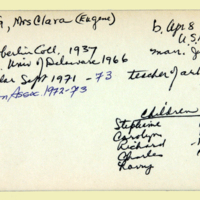 , Mrs Clara (Eugene)
b. Apr 8
U.S.
mar. J
berlin Coll., 1937
Univ of Delaware 1966
Sept 1971 - 73
teacher of ar
Assoc. 1972-73
Children
Stephanie
Carolyn
Richard
Charles
Larry